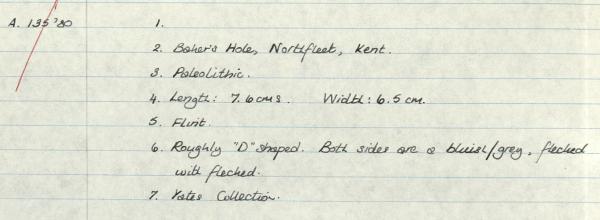 A. 135'80 1.
2. Baker's Hole, Northfleet, Kent.
3. Paleolithic.
4. Length: 7.6cms. Width: 6.5cm.
5. Flint.
6. Roughly "D" shaped. Both sides are a bluish/grey, flecked
with flecked.
7. Yates Collection.